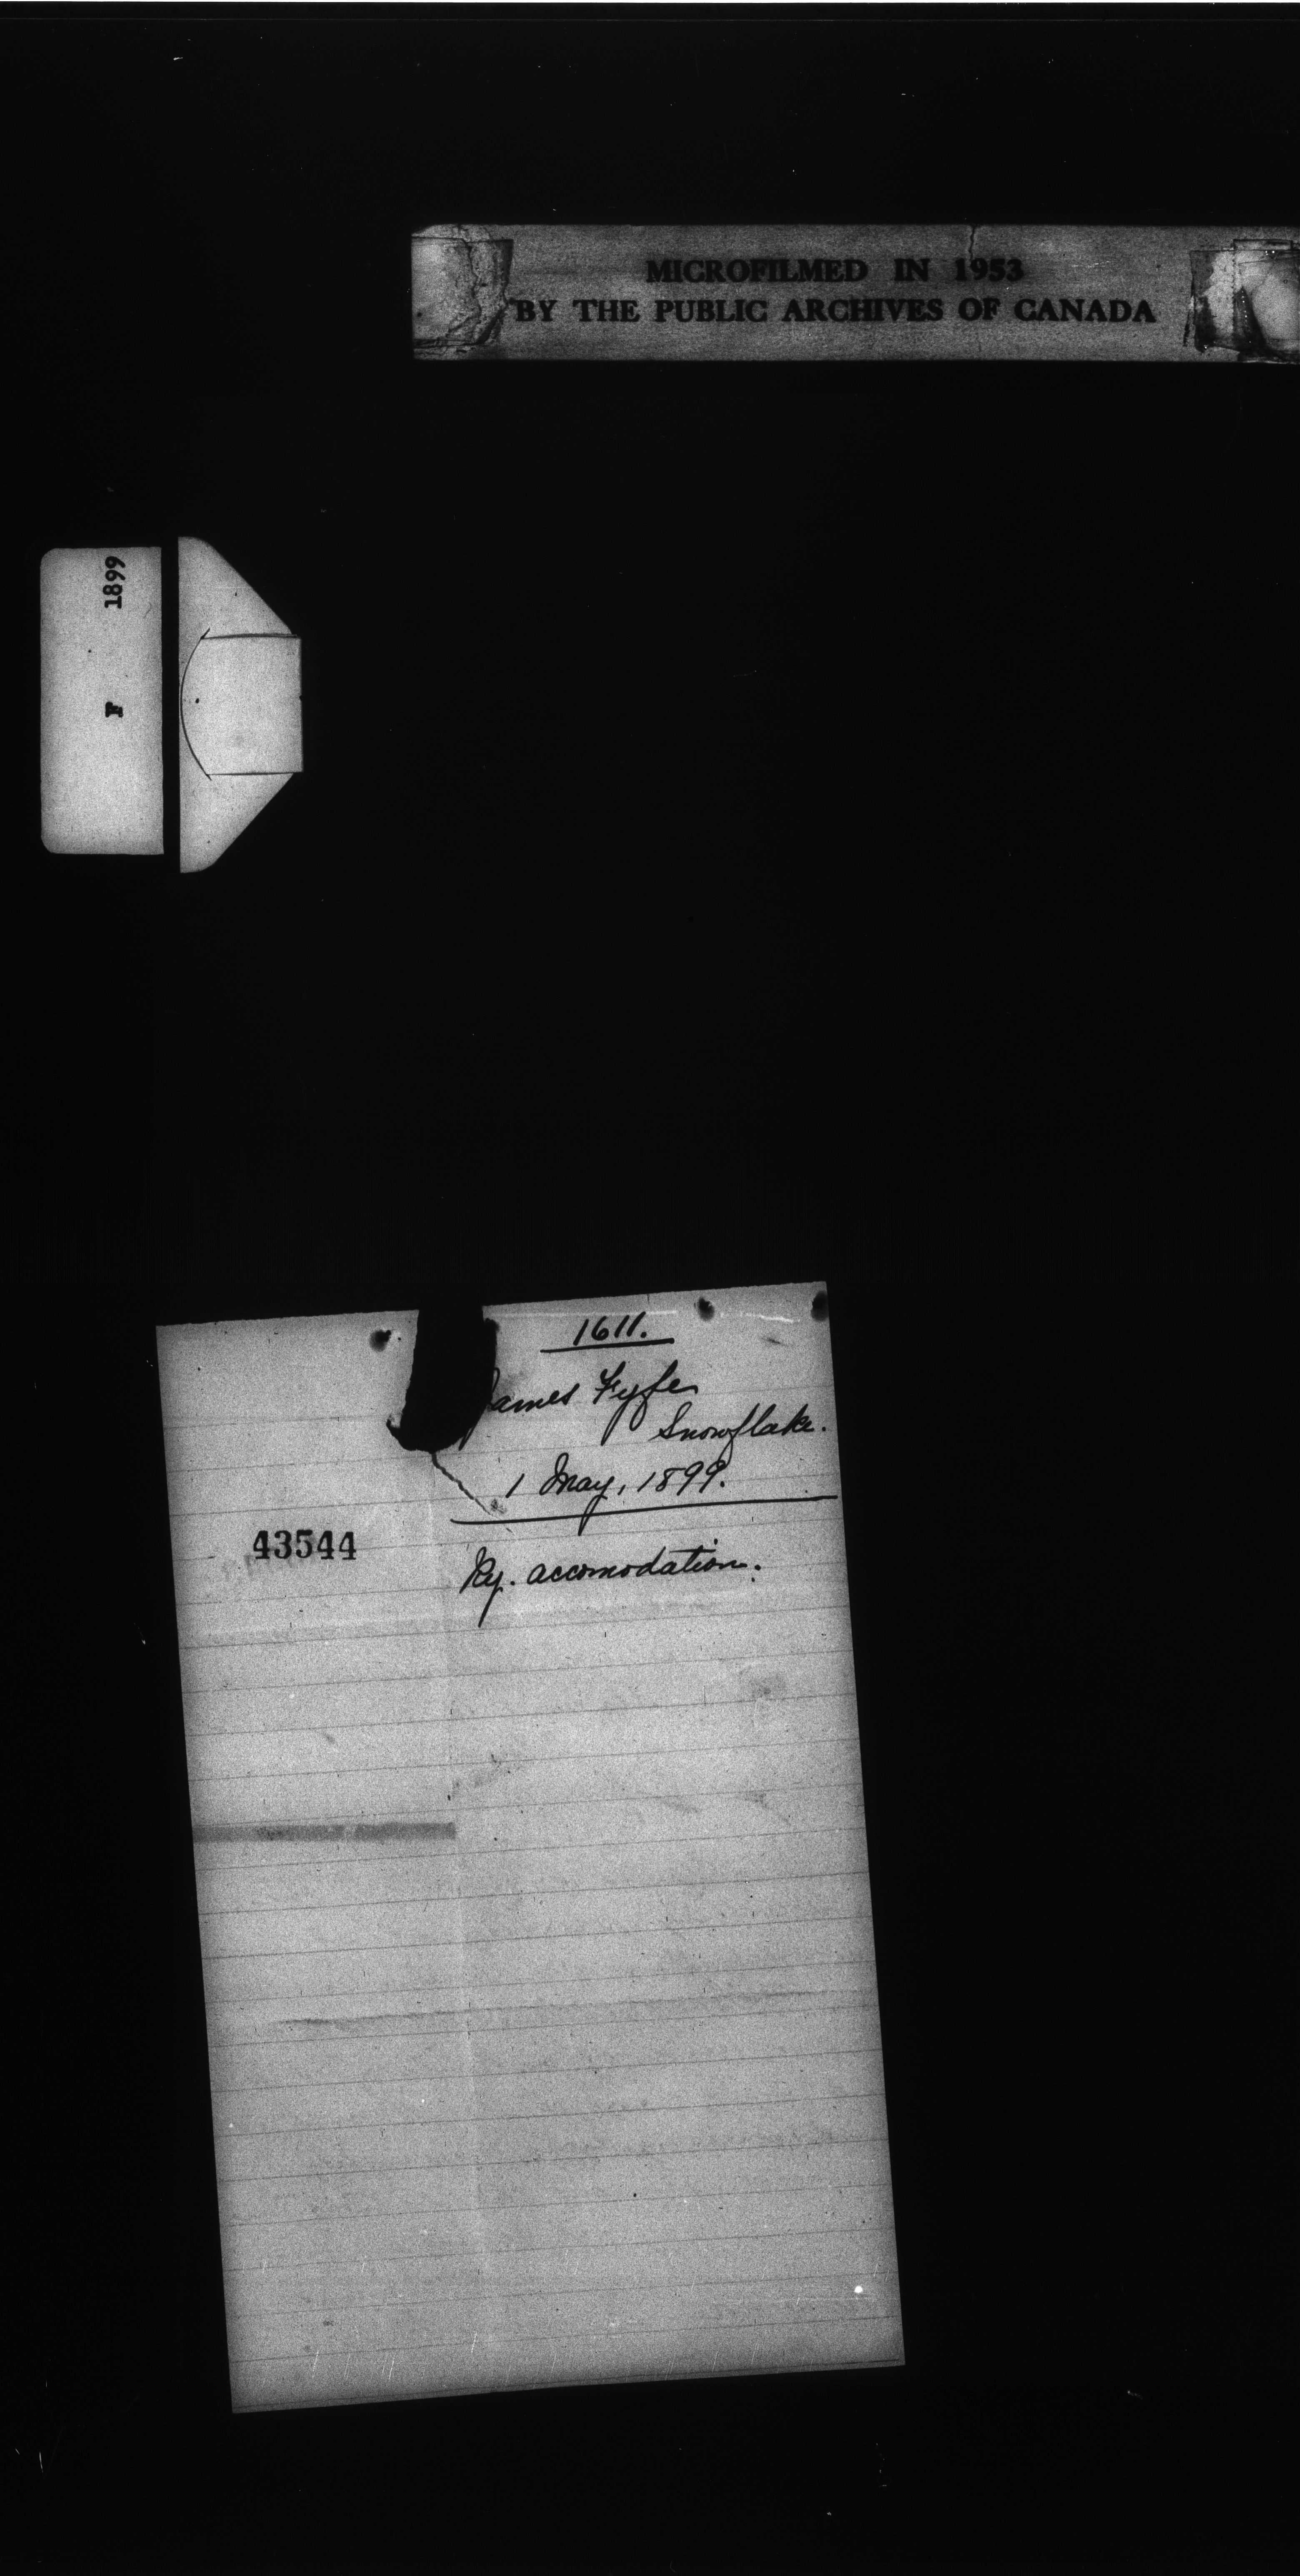 MICROFILMED IN 1953
BY THE PUBLIC ARCHIVES OF CANADA
F 1899
1611.
James Fyfe
Snowflake.
1 May, 1899.
43544
Ry. accomodation.